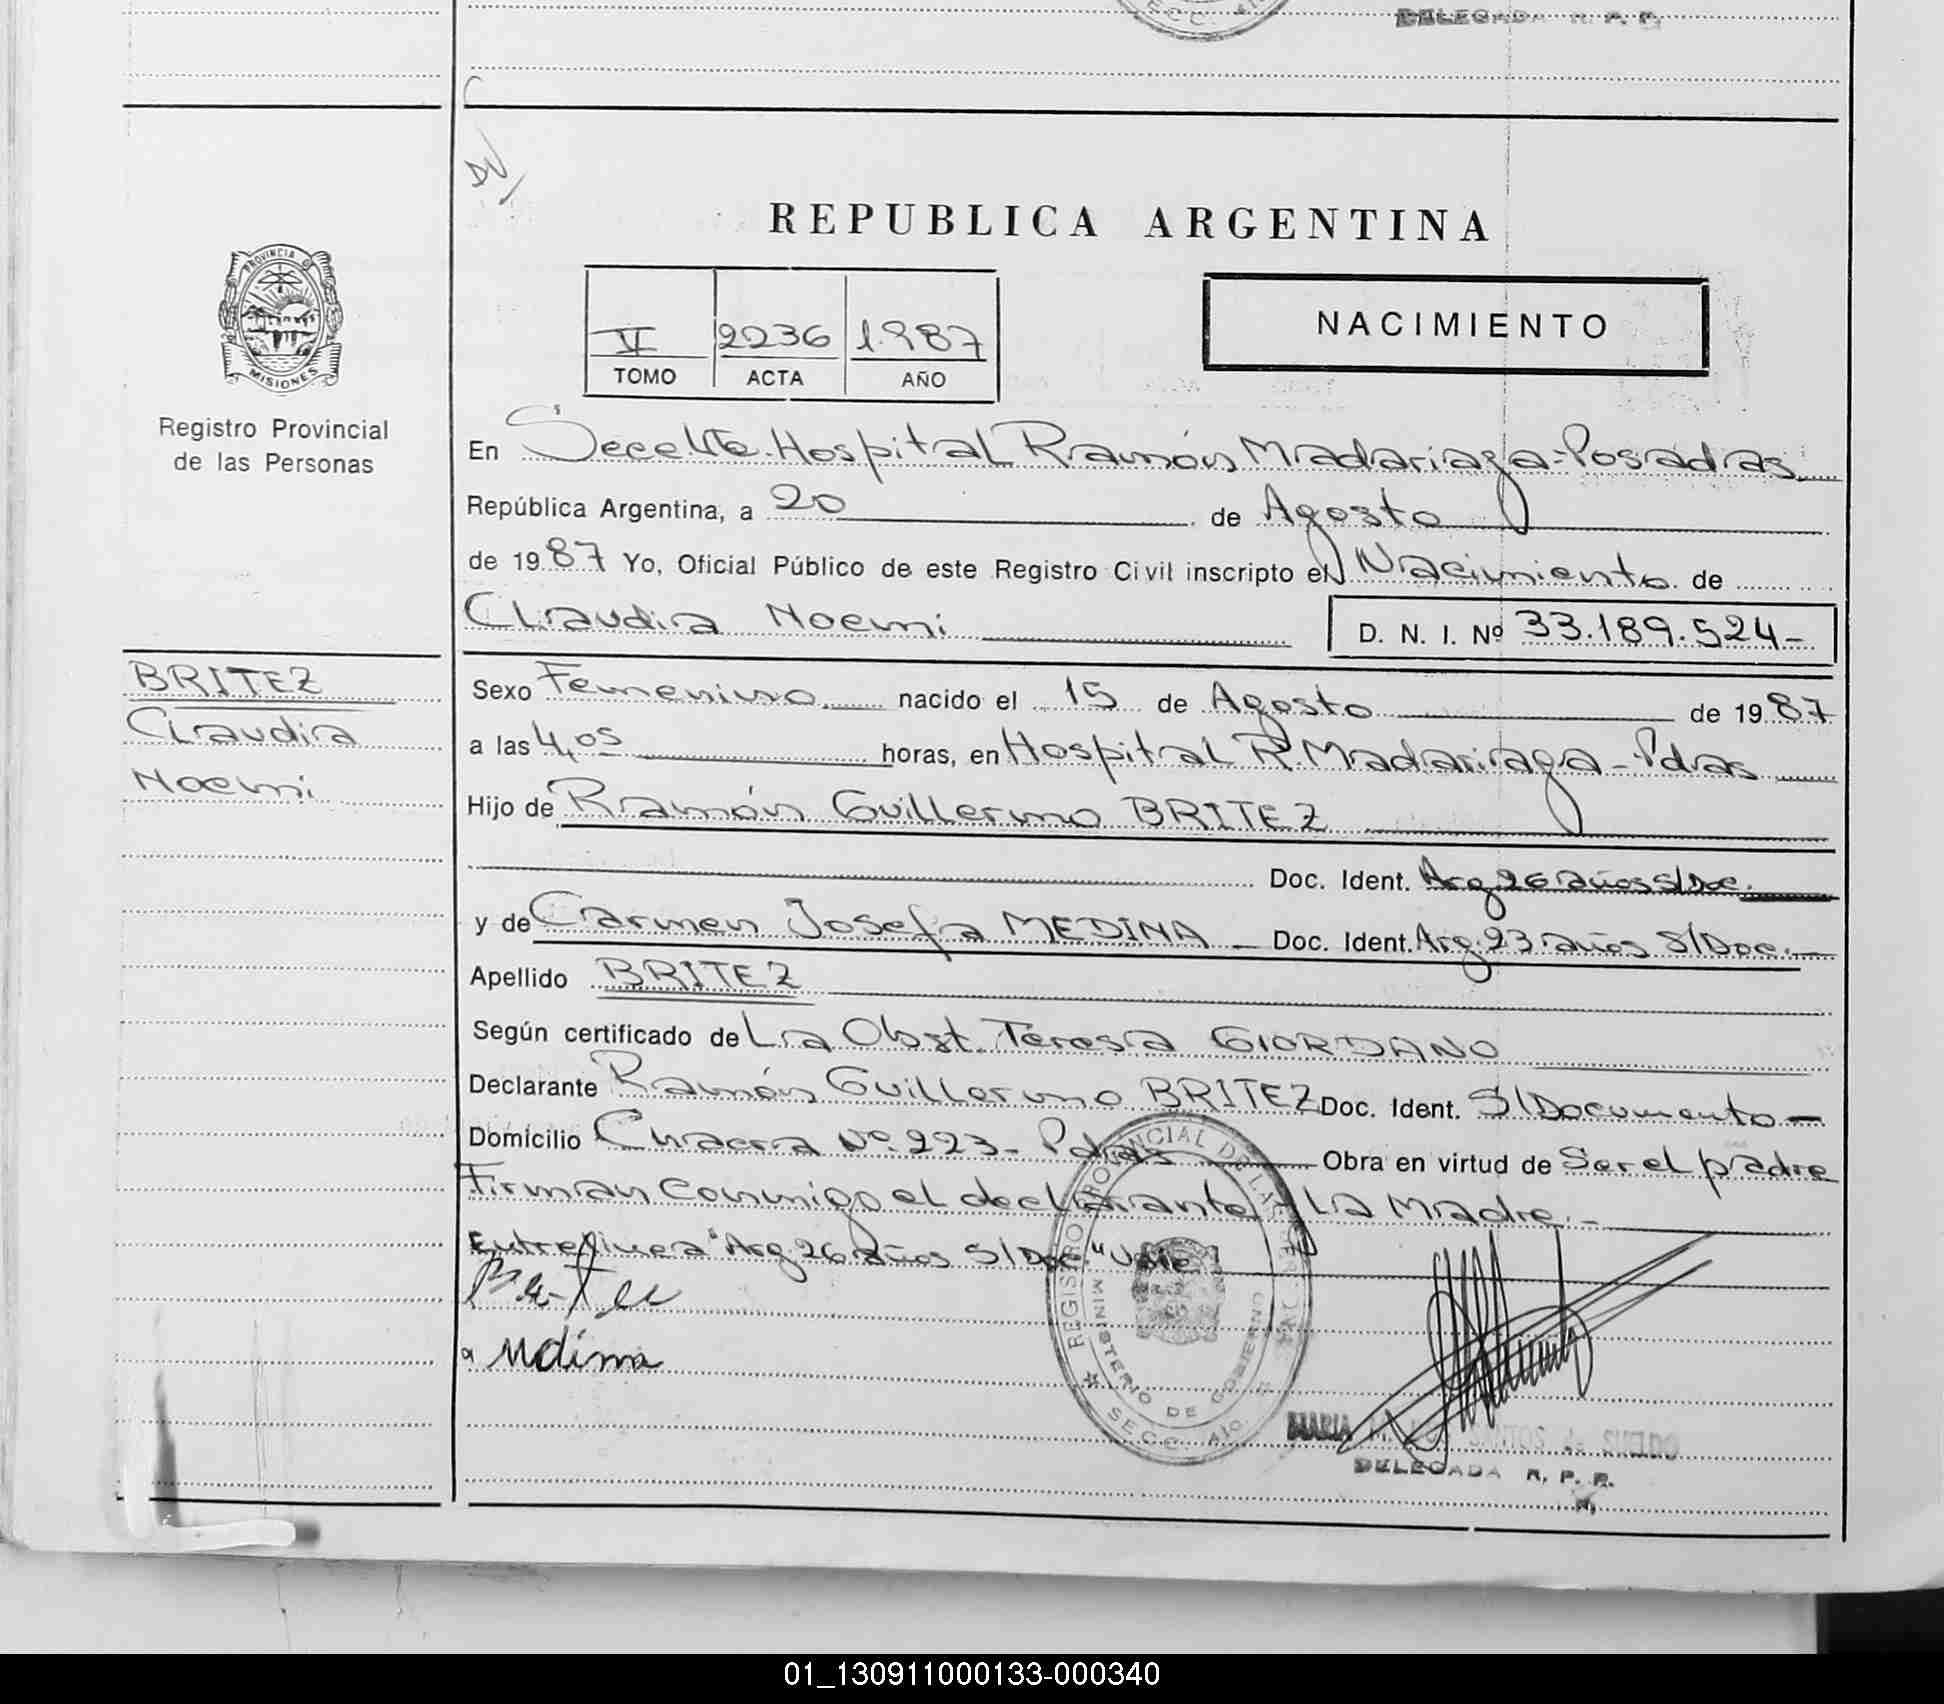 SECC. A1C.
DELEGADA R. P. P.
REPUBLICA ARGENTINA
PROVINCIA DE
MISIONES
Registro Provincial
de las Personas
V 2236 1.987
TOMO ACTA AÑO
NACIMIENTO
En Hospital Ramón Madariaga-Posadas
República Argentina, a 20 de Agosto
de 1987 Yo, Oficial Público de este Registro Civil inscripto el Nacimiento de
Claudia Noemi D. N. I. Nº 33.189.524-
BRITEZ
Claudia
Noemi
Sexo Femenino nacido el 15 de Agosto de 1987
a las 4,05 horas, en Hospital R. Madariaga - Pdas
Hijo de Ramón Guillermo BRITEZ
Doc. Ident. Arg. 26 años S/Doc.
y de Carmen Josefa MEDINA - Doc. Ident. Arg. 23 años S/Doc.-
Apellido BRITEZ
Según certificado de La Obst. Teresa GIORDANO
Declarante Ramón Guillermo BRITEZ Doc. Ident. S/Documento-
Domicilio Chacra Nº 223- Pdas Obra en virtud de Ser el padre
Firman conmigo el declarante y La Madre.-
Entrelinea "Arg. 26 años S/Doc." Vale
REGISTRO PROVINCIAL DE LAS PERSONAS
MINISTERIO DE GOBIERNO
SECC. A1C.
MARIA SANTOS de SUELDO
DELEGADA R. P. P.
01_130911000133-000340